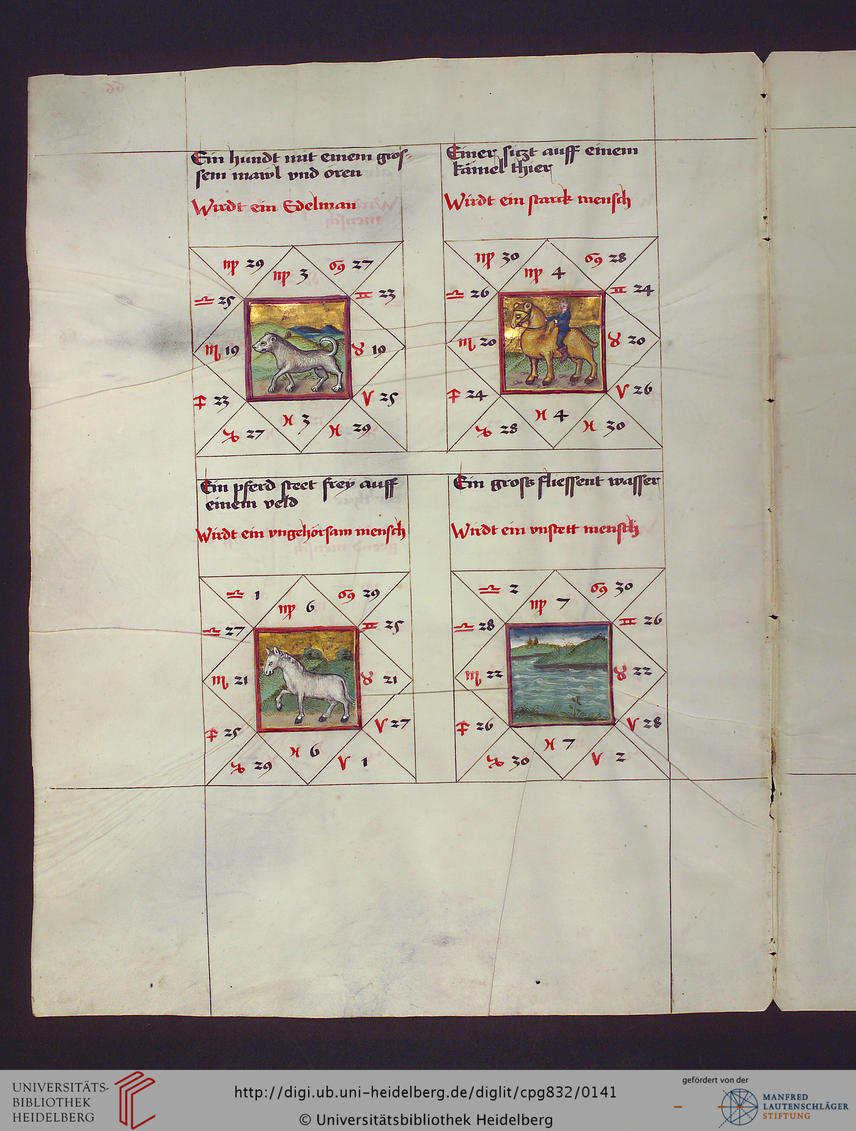 Ein hundt mit einem gros-
sem mawl vnd oren
Wirdt ein Edelman
♍ 29
♍ 3
♋ 27
♎ 25
♊ 23
♏ 19
♉ 19
♐ 23
♈ 25
♑ 27
♓ 3
♓ 29
Einer sitzt auff einem
kamel thier
Wirdt ein starck mensch
♍ 30
♍ 4
♋ 28
♎ 26
♊ 24
♏ 20
♉ 20
♐ 24
♈ 26
♑ 28
♓ 4
♓ 30
Ein pferd steet frey auff
einem veld
Wirdt ein vngehorsam mensch
♎ 1
♍ 6
♋ 29
♎ 27
♊ 25
♏ 21
♉ 21
♐ 25
♈ 27
♑ 29
♓ 6
♈ 1
Ein gross fliessent wasser
Wirdt ein vnstett mensch
♎ 2
♍ 7
♋ 30
♎ 28
♊ 26
♏ 22
♉ 22
♐ 26
♈ 28
♑ 30
♓ 7
♈ 2
UNIVERSITÄTS-
BIBLIOTHEK
HEIDELBERG
http://digi.ub.uni-heidelberg.de/diglit/cpg832/0141
© Universitätsbibliothek Heidelberg
gefördert von der
MANFRED
LAUTENSCHLÄGER
STIFTUNG